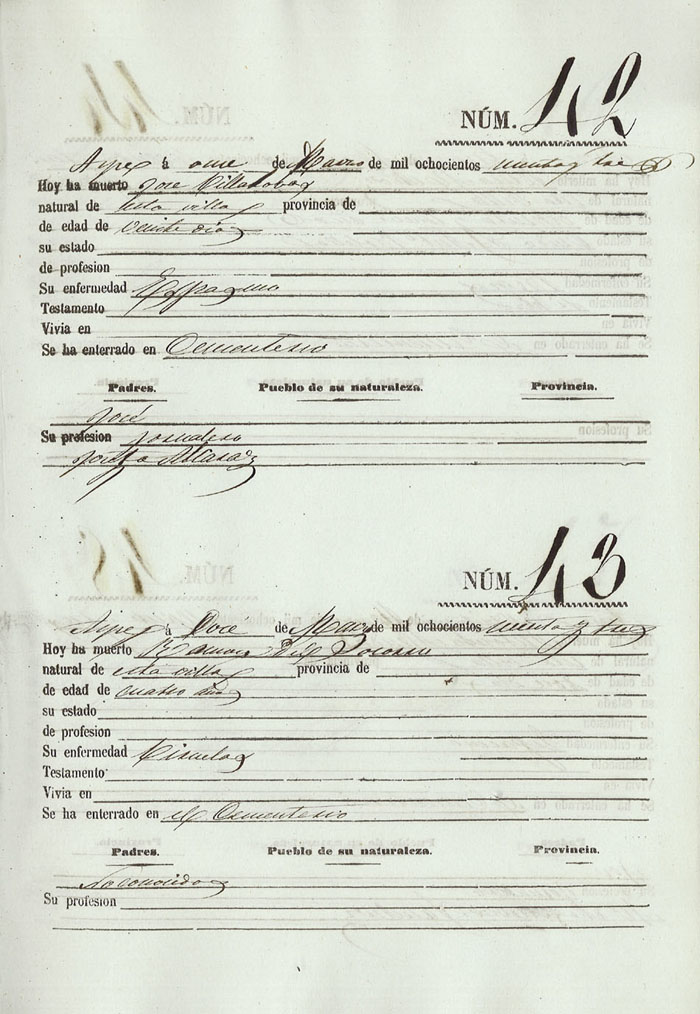 NÚM. 42
Aspe á once de Marzo de mil ochocientos
Hoy ha muerto José Villalobos
natural de esta villa provincia de
de edad de veinte dias
su estado
de profesion
Su enfermedad Espasmo
Testamento
Vivia en
Se ha enterrado en Cementerio
Padres. Pueblo de su naturaleza. Provincia.
José
Su profesion Jornalero
Josefa Alcaraz
NÚM. 43
Aspe á Doce de Marzo de mil ochocientos y tres
Hoy ha muerto Ramon
natural de esta villa provincia de
de edad de cuatro
su estado
de profesion
Su enfermedad Viruelas
Testamento
Vivia en
Se ha enterrado en el Cementerio
Padres. Pueblo de su naturaleza. Provincia.
Su profesion